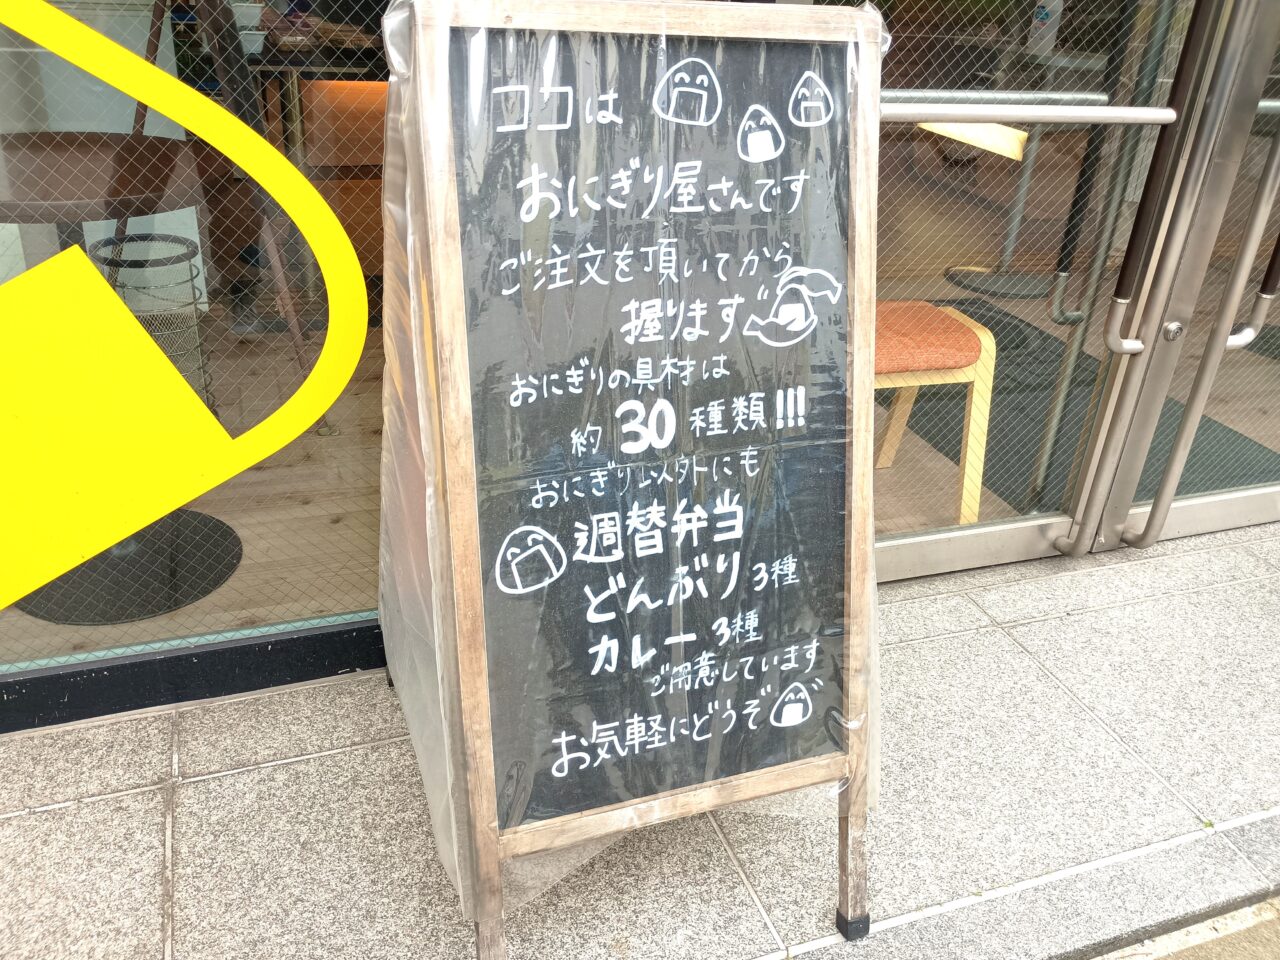 ココは
おにぎり屋さんです
ご注文を頂いてから
握ります
おにぎりの具材は
約30種類!!!
おにぎり以外にも
週替弁当
どんぶり3種
カレー3種
ご用意しています
お気軽にどうぞ